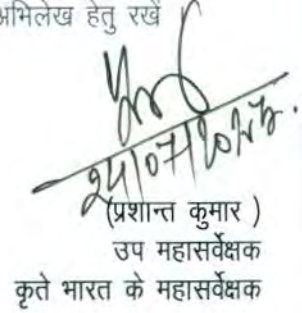 अभिलेख हेतु रखें
(प्रशान्त कुमार )
उप महासर्वेक्षक
कृते भारत के महासर्वेक्षक